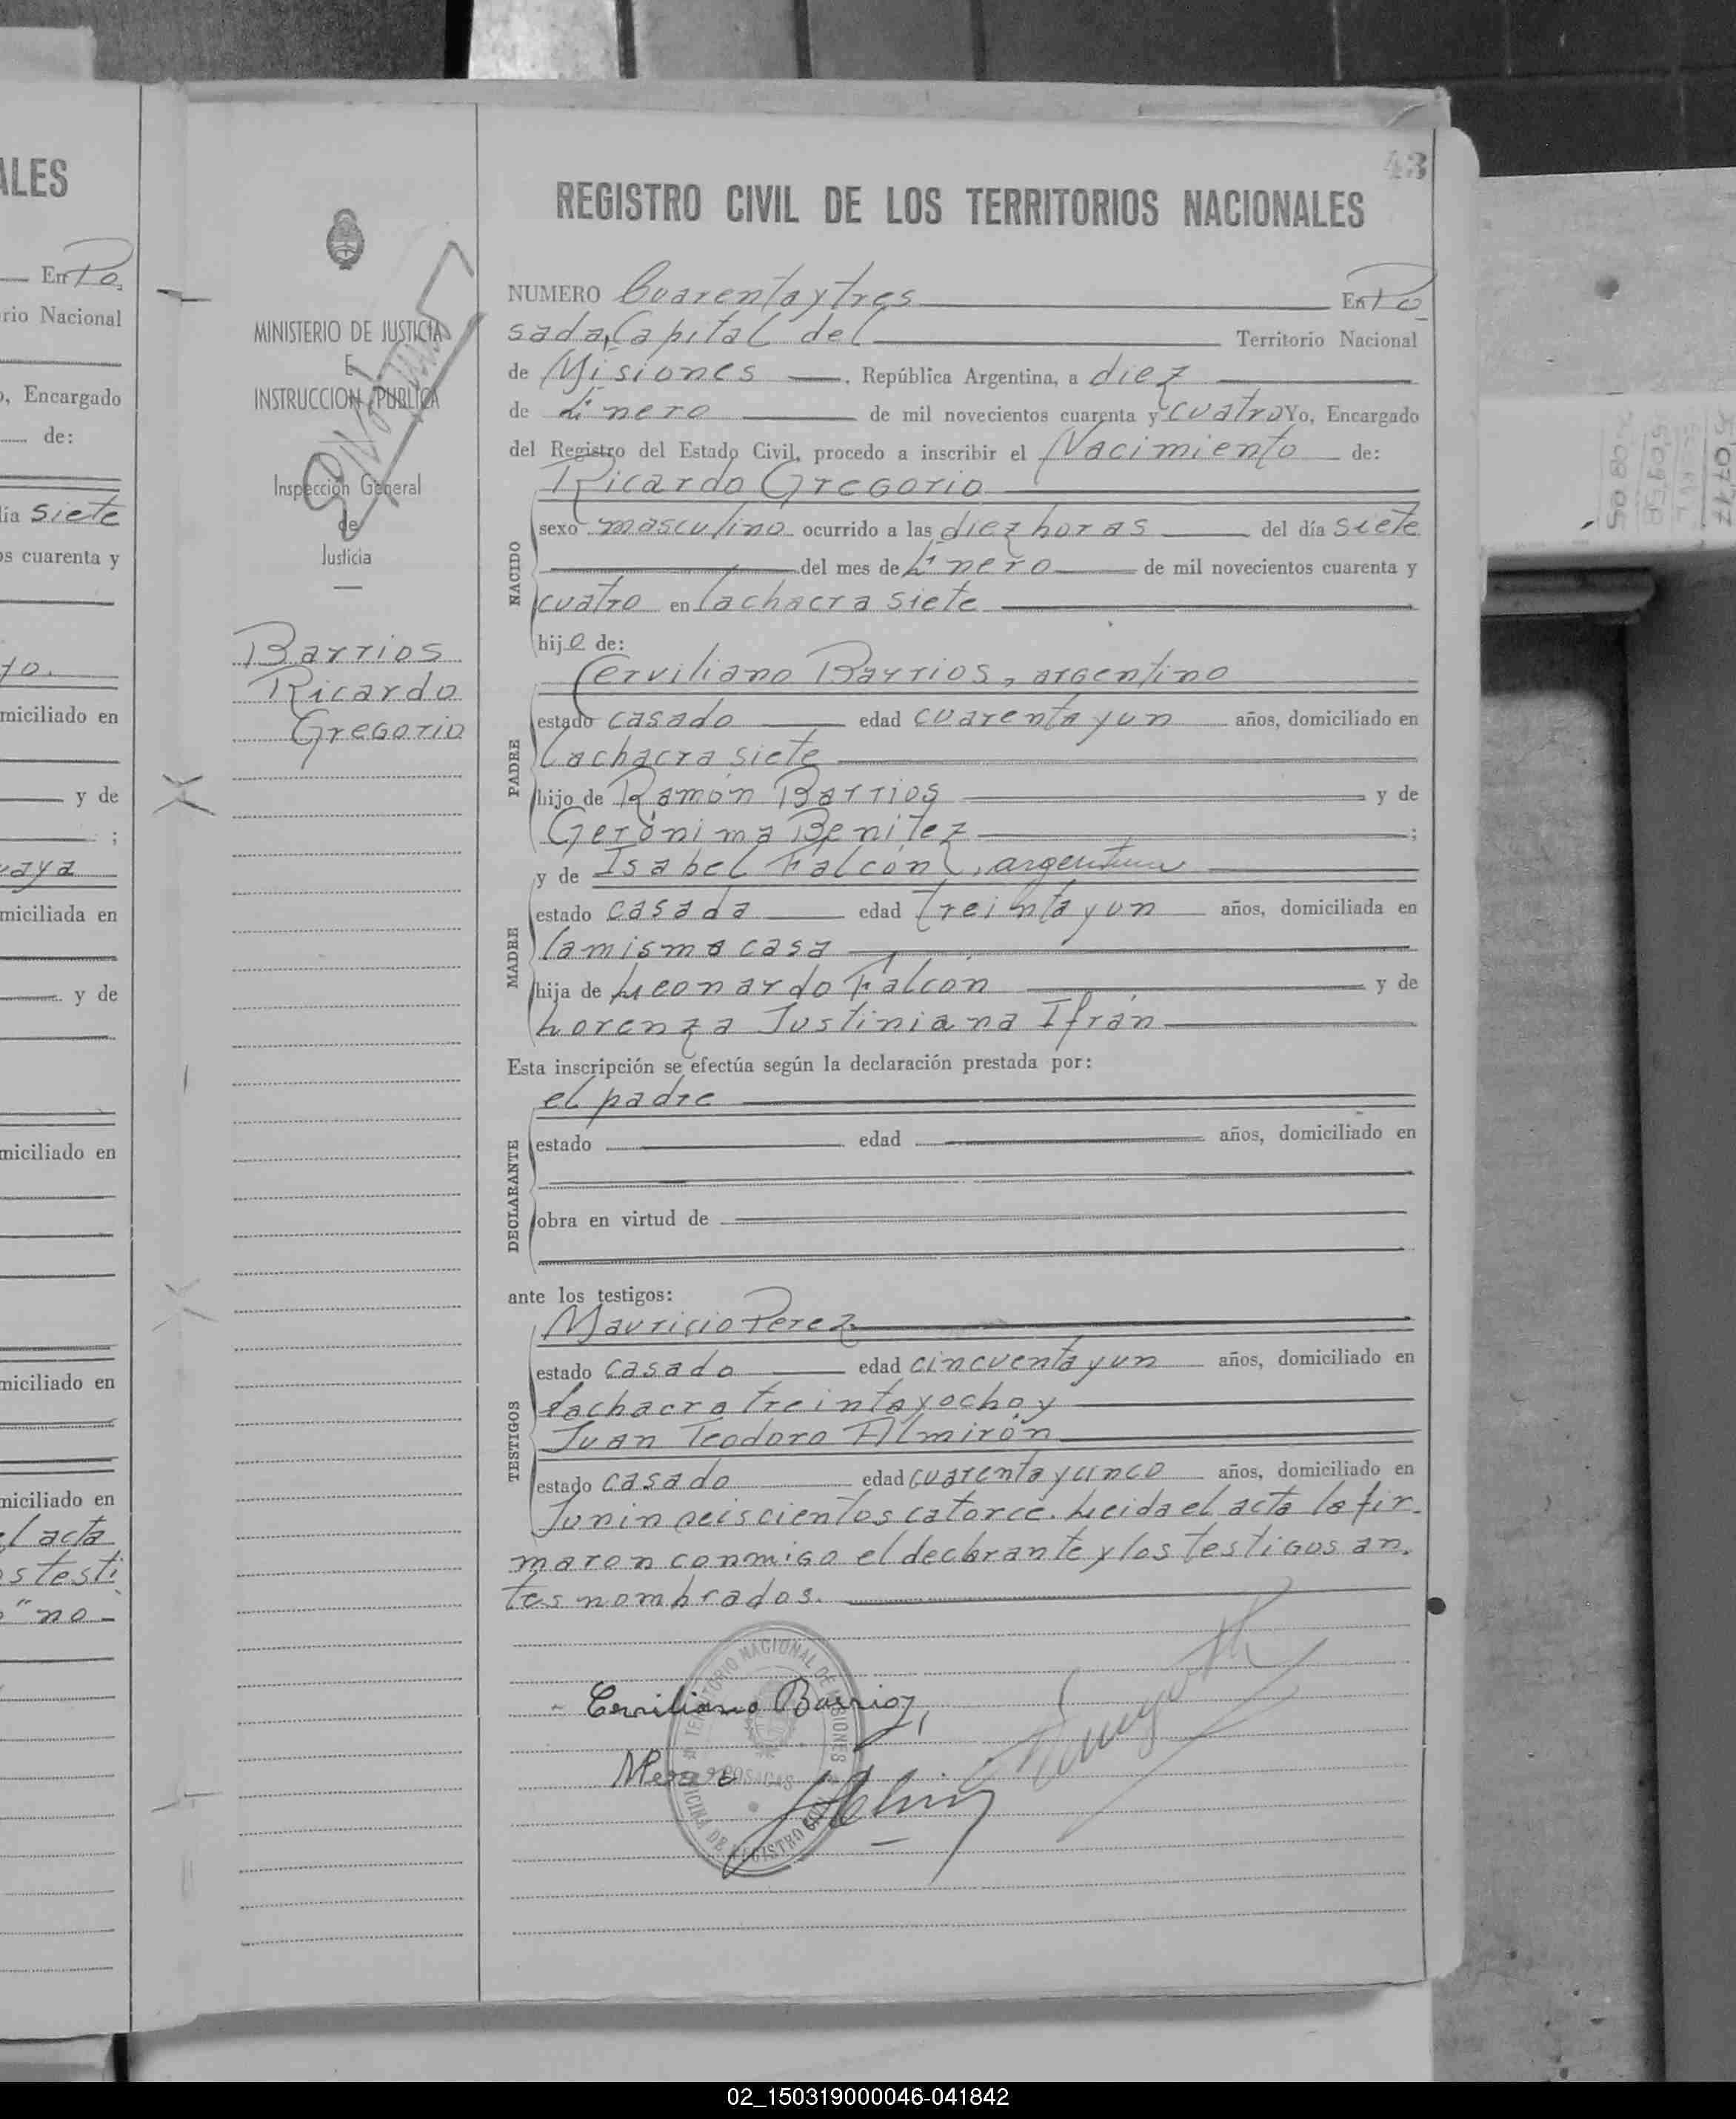 ALES
En Po
rio Nacional
o, Encargado
de:
ía siete
os cuarenta y
miciliado en
y de
;
uaya
miciliada en
y de
miciliado en
miciliado en
miciliado en
el acta
s testi
" no
MINISTERIO DE JUSTICIA
E
INSTRUCCION PUBLICA
Inspección General
de
Justicia
Barrios
Ricardo
Gregorio
43
REGISTRO CIVIL DE LOS TERRITORIOS NACIONALES
NUMERO Cuarenta y tres En Po
sada, Capital del Territorio Nacional
de Misiones . República Argentina, a diez
de Enero de mil novecientos cuarenta y cuatro Yo, Encargado
del Registro del Estado Civil, procedo a inscribir el Nacimiento de:
Ricardo Gregorio
NACIDO
sexo masculino ocurrido a las diez horas del día siete
del mes de Enero de mil novecientos cuarenta y
cuatro en la chacra siete
hijo de:
PADRE
Cerviliano Barrios, argentino
estado casado edad cuarenta y un años, domiciliado en
la chacra siete
hijo de Ramón Barrios y de
Gerónima Benitez ;
MADRE
y de Isabel Falcón, argentina
estado casada edad treinta y un años, domiciliada en
la misma casa
hija de Leonardo Falcón y de
Lorenza Justiniana Ifrán
Esta inscripción se efectúa según la declaración prestada por:
DECLARANTE
el padre
estado edad años, domiciliado en
obra en virtud de
ante los testigos:
TESTIGOS
Mauricio Perez
estado casado edad cincuenta y un años, domiciliado en
la chacra treinta y ocho y
Juan Teodoro Almirón
estado casado edad cuarenta y cinco años, domiciliado en
Junin seiscientos catorce. Leida el acta la fir-
maron conmigo el declarante y los testigos an-
tes nombrados.
TERRITORIO NACIONAL DE MISIONES
POSADAS
OFICINA DE REGISTRO CIVIL
Cerviliano Barrios
02_150319000046-041842